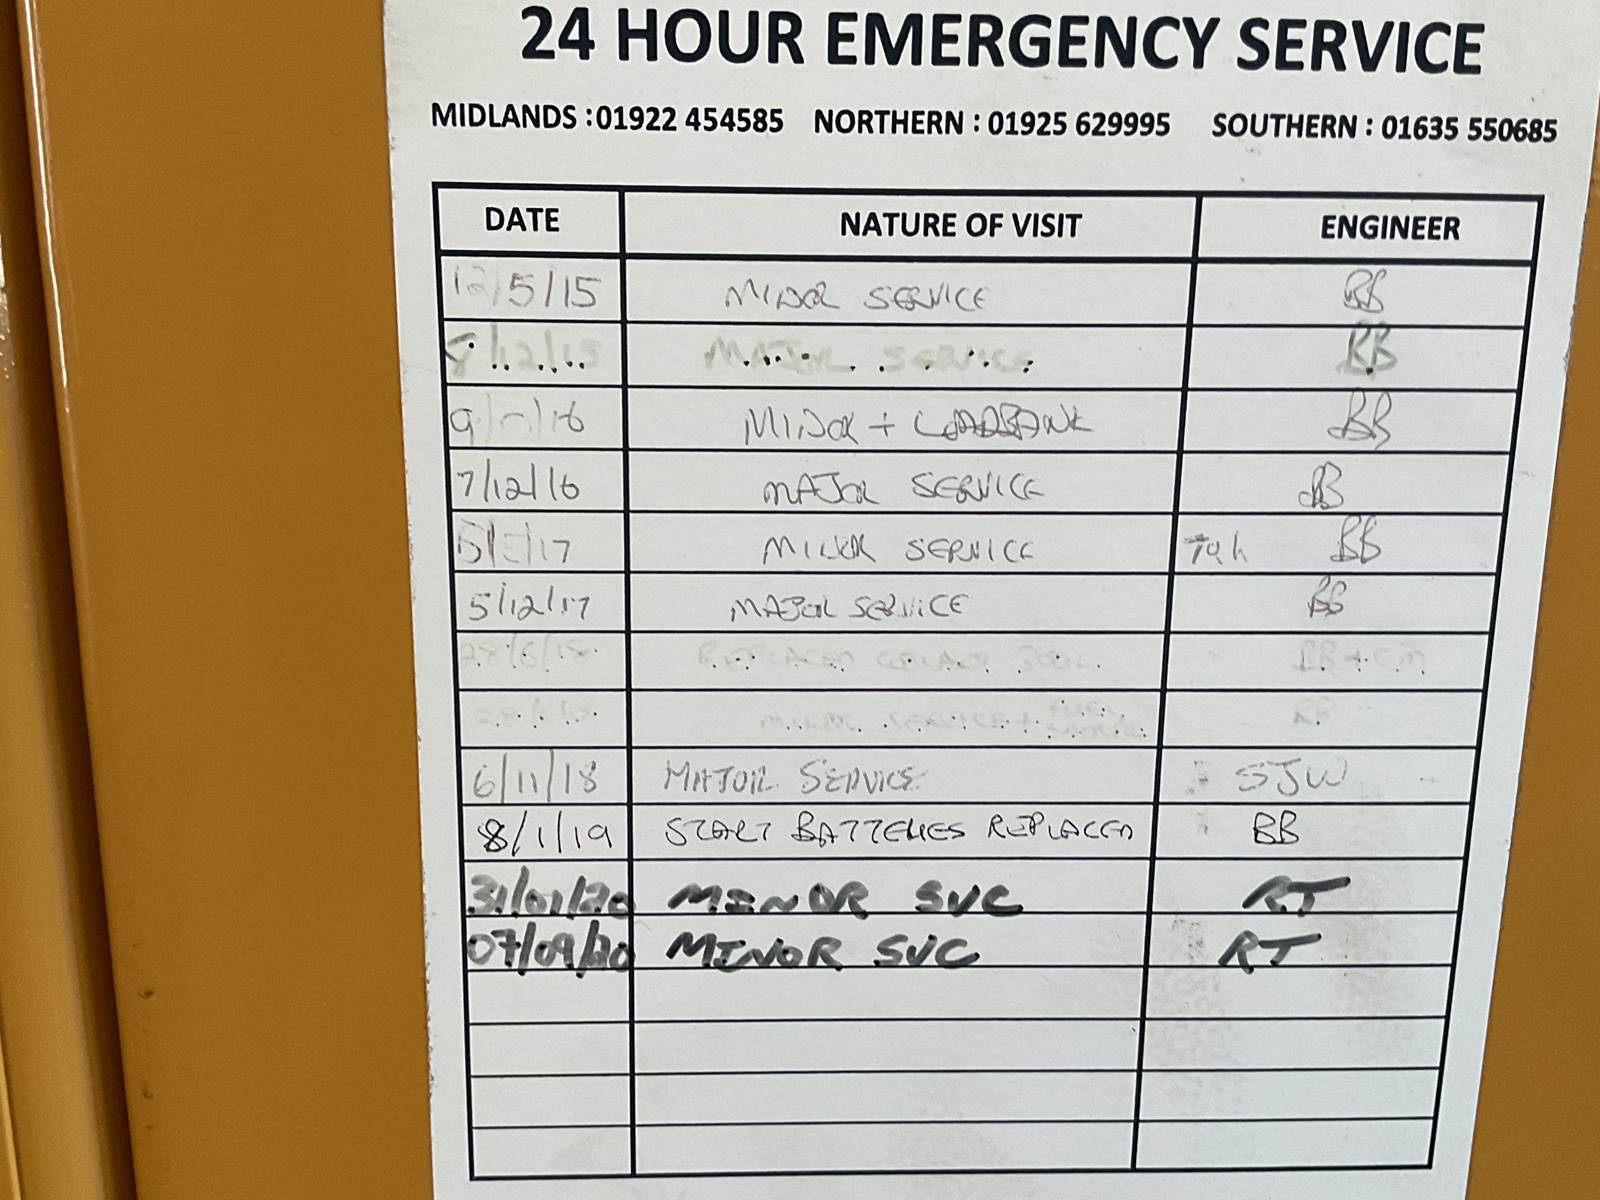 24 HOUR EMERGENCY SERVICE
MIDLANDS :01922 454585 NORTHERN : 01925 629995 SOUTHERN : 01635 550685
DATE NATURE OF VISIT ENGINEER
12/5/15 MINOR SERVICE BB
8/12/15 MAJOR SERVICE BB
MINOR + LOADBANK BB
7/12/16 MAJOR SERVICE BB
MINOR SERVICE BB
5/12/17 MAJOR SERVICE BB
28/6/18 REPLACED COOLANT
MINOR SERVICE + BB
6/11/18 MAJOR SERVICE SJW
8/1/19 START BATTERIES REPLACED BB
31/01/20 MINOR SVC RT
07/09/20 MINOR SVC RT